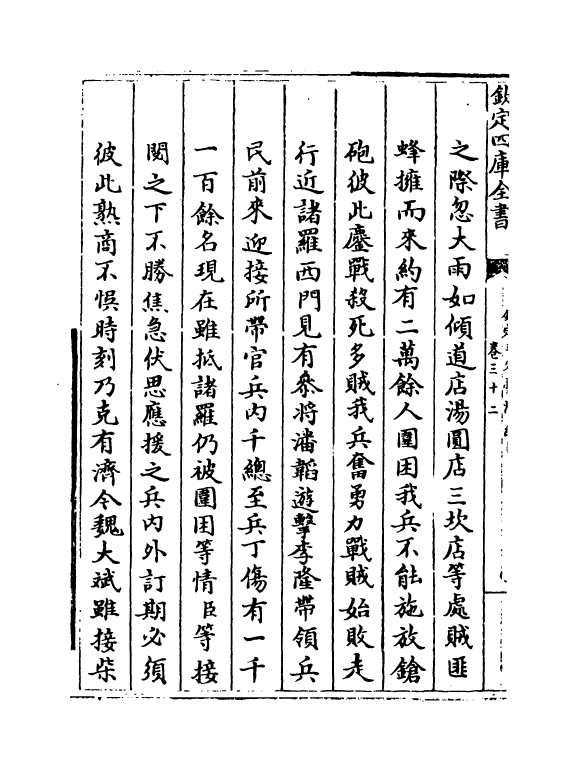 欽定四庫全書
卷三十二
之際忽大雨如傾道店湯圓店三坎店等處賊匪
蜂擁而來約有二萬餘人圍困我兵不能施放鎗
砲彼此鏖戰殺死多賊我兵奮勇力戰賊始敗走
行近諸羅西門見有叅將潘韜遊擊李隆帶領兵
民前來迎接所帶官兵內千總至兵丁傷有一千
一百餘名現在雖抵諸羅仍被圍困等情臣等接
閱之下不勝焦急伏思應援之兵內外訂期必須
彼此熟商不悞時刻乃克有濟今魏大斌雖接柴